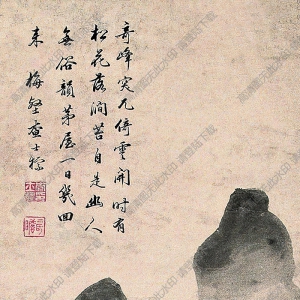 奇峰突兀倚雲開時有
松花落澗苔自是幽人
無俗韻茅屋一日幾回
來 梅壑查士標